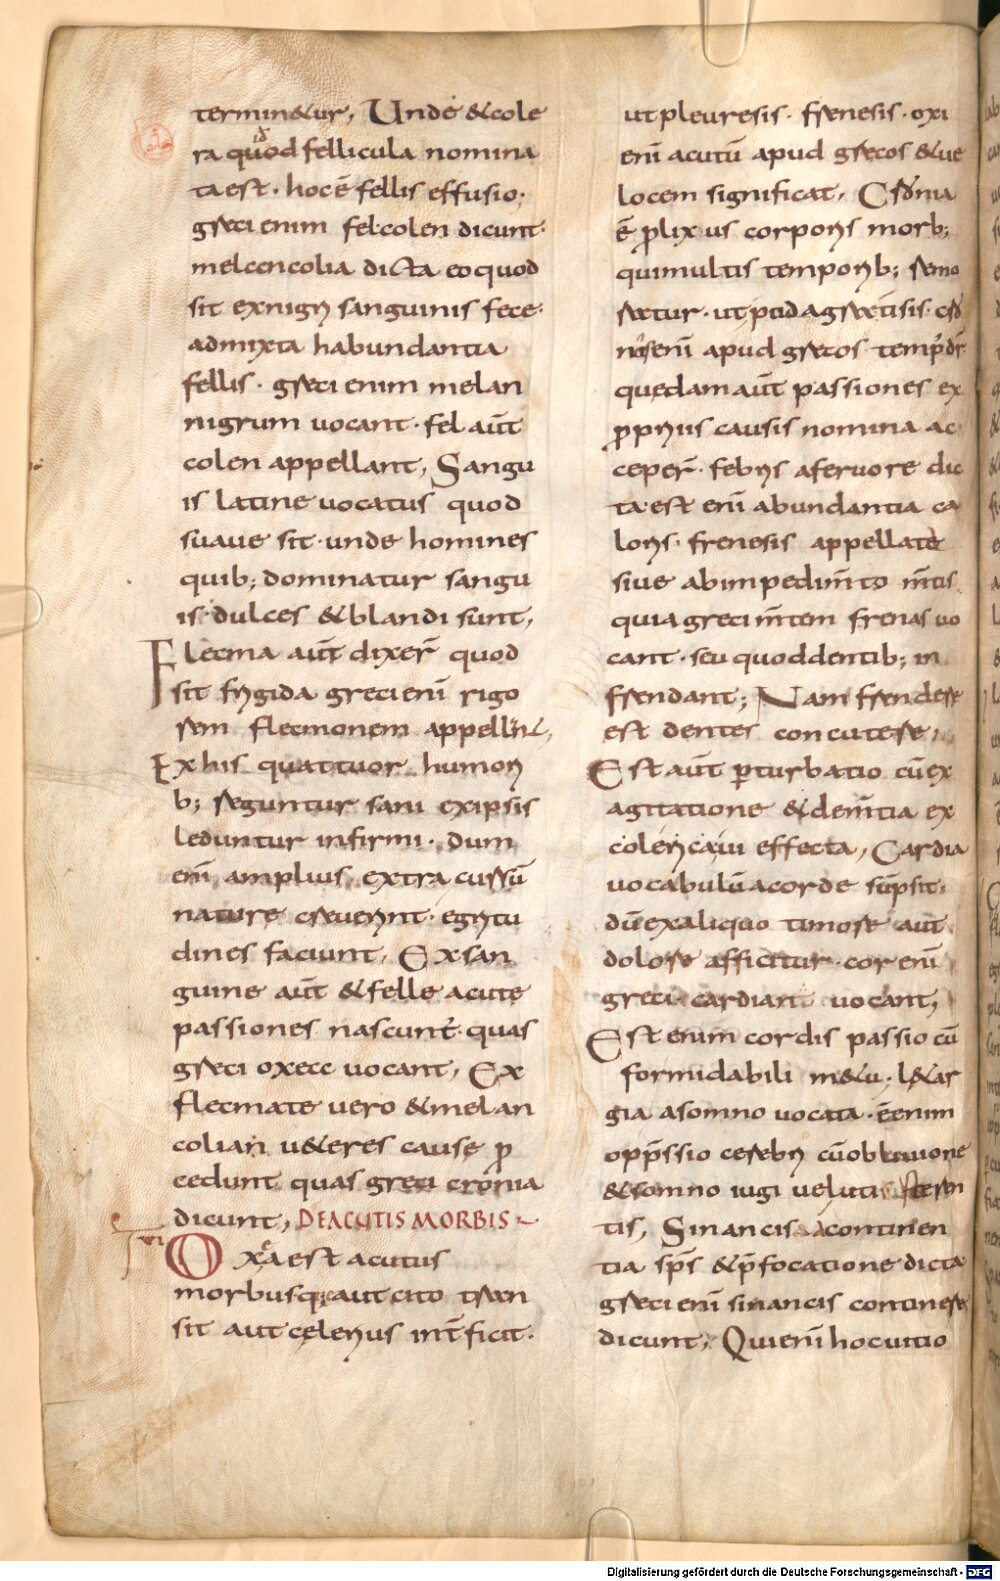 termin&ur, Unde &cole
ra quod fellicula nomina
ta est · hoc ē fellis effusio;
greci enim fel colen dicunt·
melencolia dicta eo quod
sit ex nigri sanguinis fece·
admixta habundantia
fellis · greci enim melan
nigrum uocant · fel aūt
colen appellant, Sangu
is latine uocatus quod
suaue sit · unde homines
quib; dominatur sangu
is · dulces & blandi sunt,
Flecma aūt dixer̄ quod
sit frigida greci enī rigo
rem flecmonem appellant,
Ex his quattuor humori
b; reguntur sani ex ipsis
leduntur infirmi · dum
enī amplius extra cursū
nature creuerint · egritu
dines faciunt, Ex san
guine aūt & felle acute
passiones nascunt̄ · quas
greci oxea uocant, Ex
flecmate uero & melan
colian u&eres cause p̄
cedunt quas greci cronia
dicunt, DE ACUTIS MORBIS
VI
Oxea est acutus
morbus qui aut cito tran
sit aut celerius int̄ficit·
ut pleuresis · frenesis · oxi
enī acutū apud grecos & ue
locem significat, Cronia
ē plixus corporis morb;
qui multis temporib; remo
ratur · ut podagra tisis · cro
nis enī apud grecos temp dr̄
quedam aūt passiones ex
propriis causis nomina ac
ceper̄ · febris a feruore dic
ta · est enī abundantia ca
loris · frenesis appellata ē
siue ab impedim̄to m̄tis
quia greci m̄tem frenas uo
cant · seu quod dentib; in
frendant; Nam frendere
est dentes concutere,
Est aūt p̄turbatio cū ex
agitatione & dem̄tia ex
colerica ui effecta, Cardia
uocabulū a corde sūpsit·
dū ex aliquo timore aut
dolore afficitur · cor enī
greci cardian uocant,
Est enim cordis passio cū
formidabili m&u · l&ar
gia a somno uocata · ē enim
opp̄ssio cerebri cū obliuione
& somno iugi ueluti
tis, Sinancis a continen
tia sp̄s & p̄focatione dicta
greci enī sinancis continere
dicunt, Qui enī hoc uitio
Digitalisierung gefördert durch die Deutsche Forschungsgemeinschaft - DFG